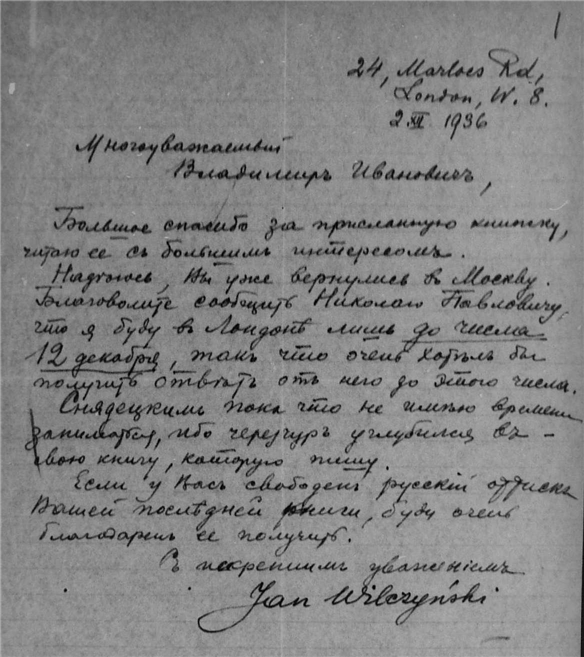 1
24, Marloes Rd,
London, W. 8.
2 XII 1936
Многоуважаемый
Владимиръ Ивановичъ,
Большое спасибо за присланную книжку,
читаю её съ большимъ интересомъ.
Надѣюсь, Вы уже вернулись въ Москву.
Благоволите сообщить Николаю Павловичу,
что я буду въ Лондонѣ лишь до числа
12 декабря, такъ что очень хотѣлъ бы
получить отвѣтъ отъ него до этого числа.
Снядецкимъ пока что не имѣю времени
заниматся, ибо черезчуръ углубился въ –
свою книгу, которую пишу.
Если у Васъ свободенъ русскій оттискъ
Вашей послѣдней книги, буду очень
благодаренъ ее получить.
Съ искреннимъ уваженіемъ
Jan Wilczyński